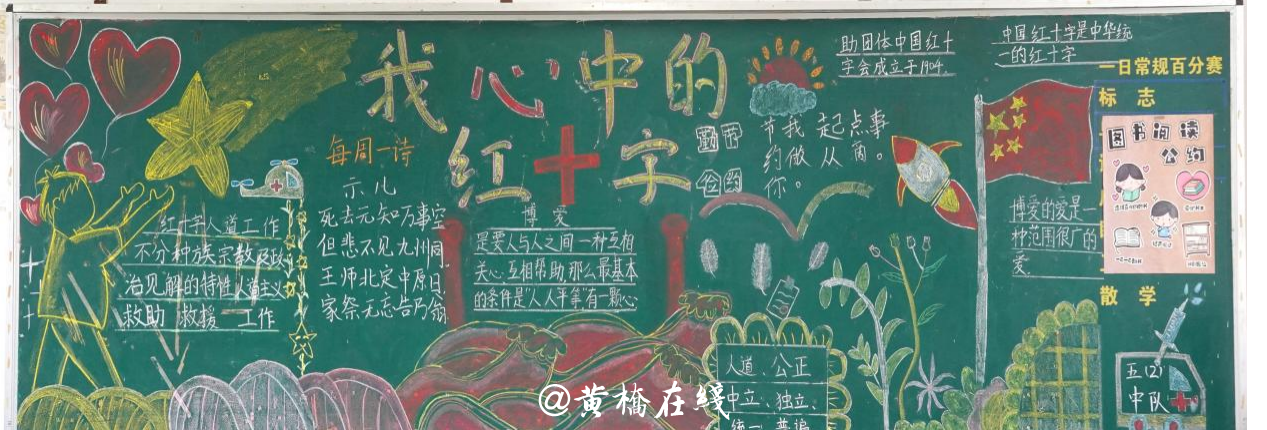 我心中的
红十字
每周一诗
示儿
死去元知万事空
但悲不见九州同
王师北定中原日
家祭无忘告乃翁
红十字人道工作
不分种族宗教及政
治见解的特性人道主义
救助 救援 工作
博爱
是要人与人之间一种互相
关心、互相帮助,那么最基本
的条件是“人人平等”有一颗心
勤节
俭约
节我 起点事
约做 从尚。
你。
助团体中国红十
字会成立于1904.
中国红十字是中华统
一的红十字
一日常规百分赛
标 志
图书阅读
公约
博爱的爱是一
种范围很广的
爱.
散 学
人道、公正
中立、独立、
统一 普遍
五(2)
中队
@黄橋在綫